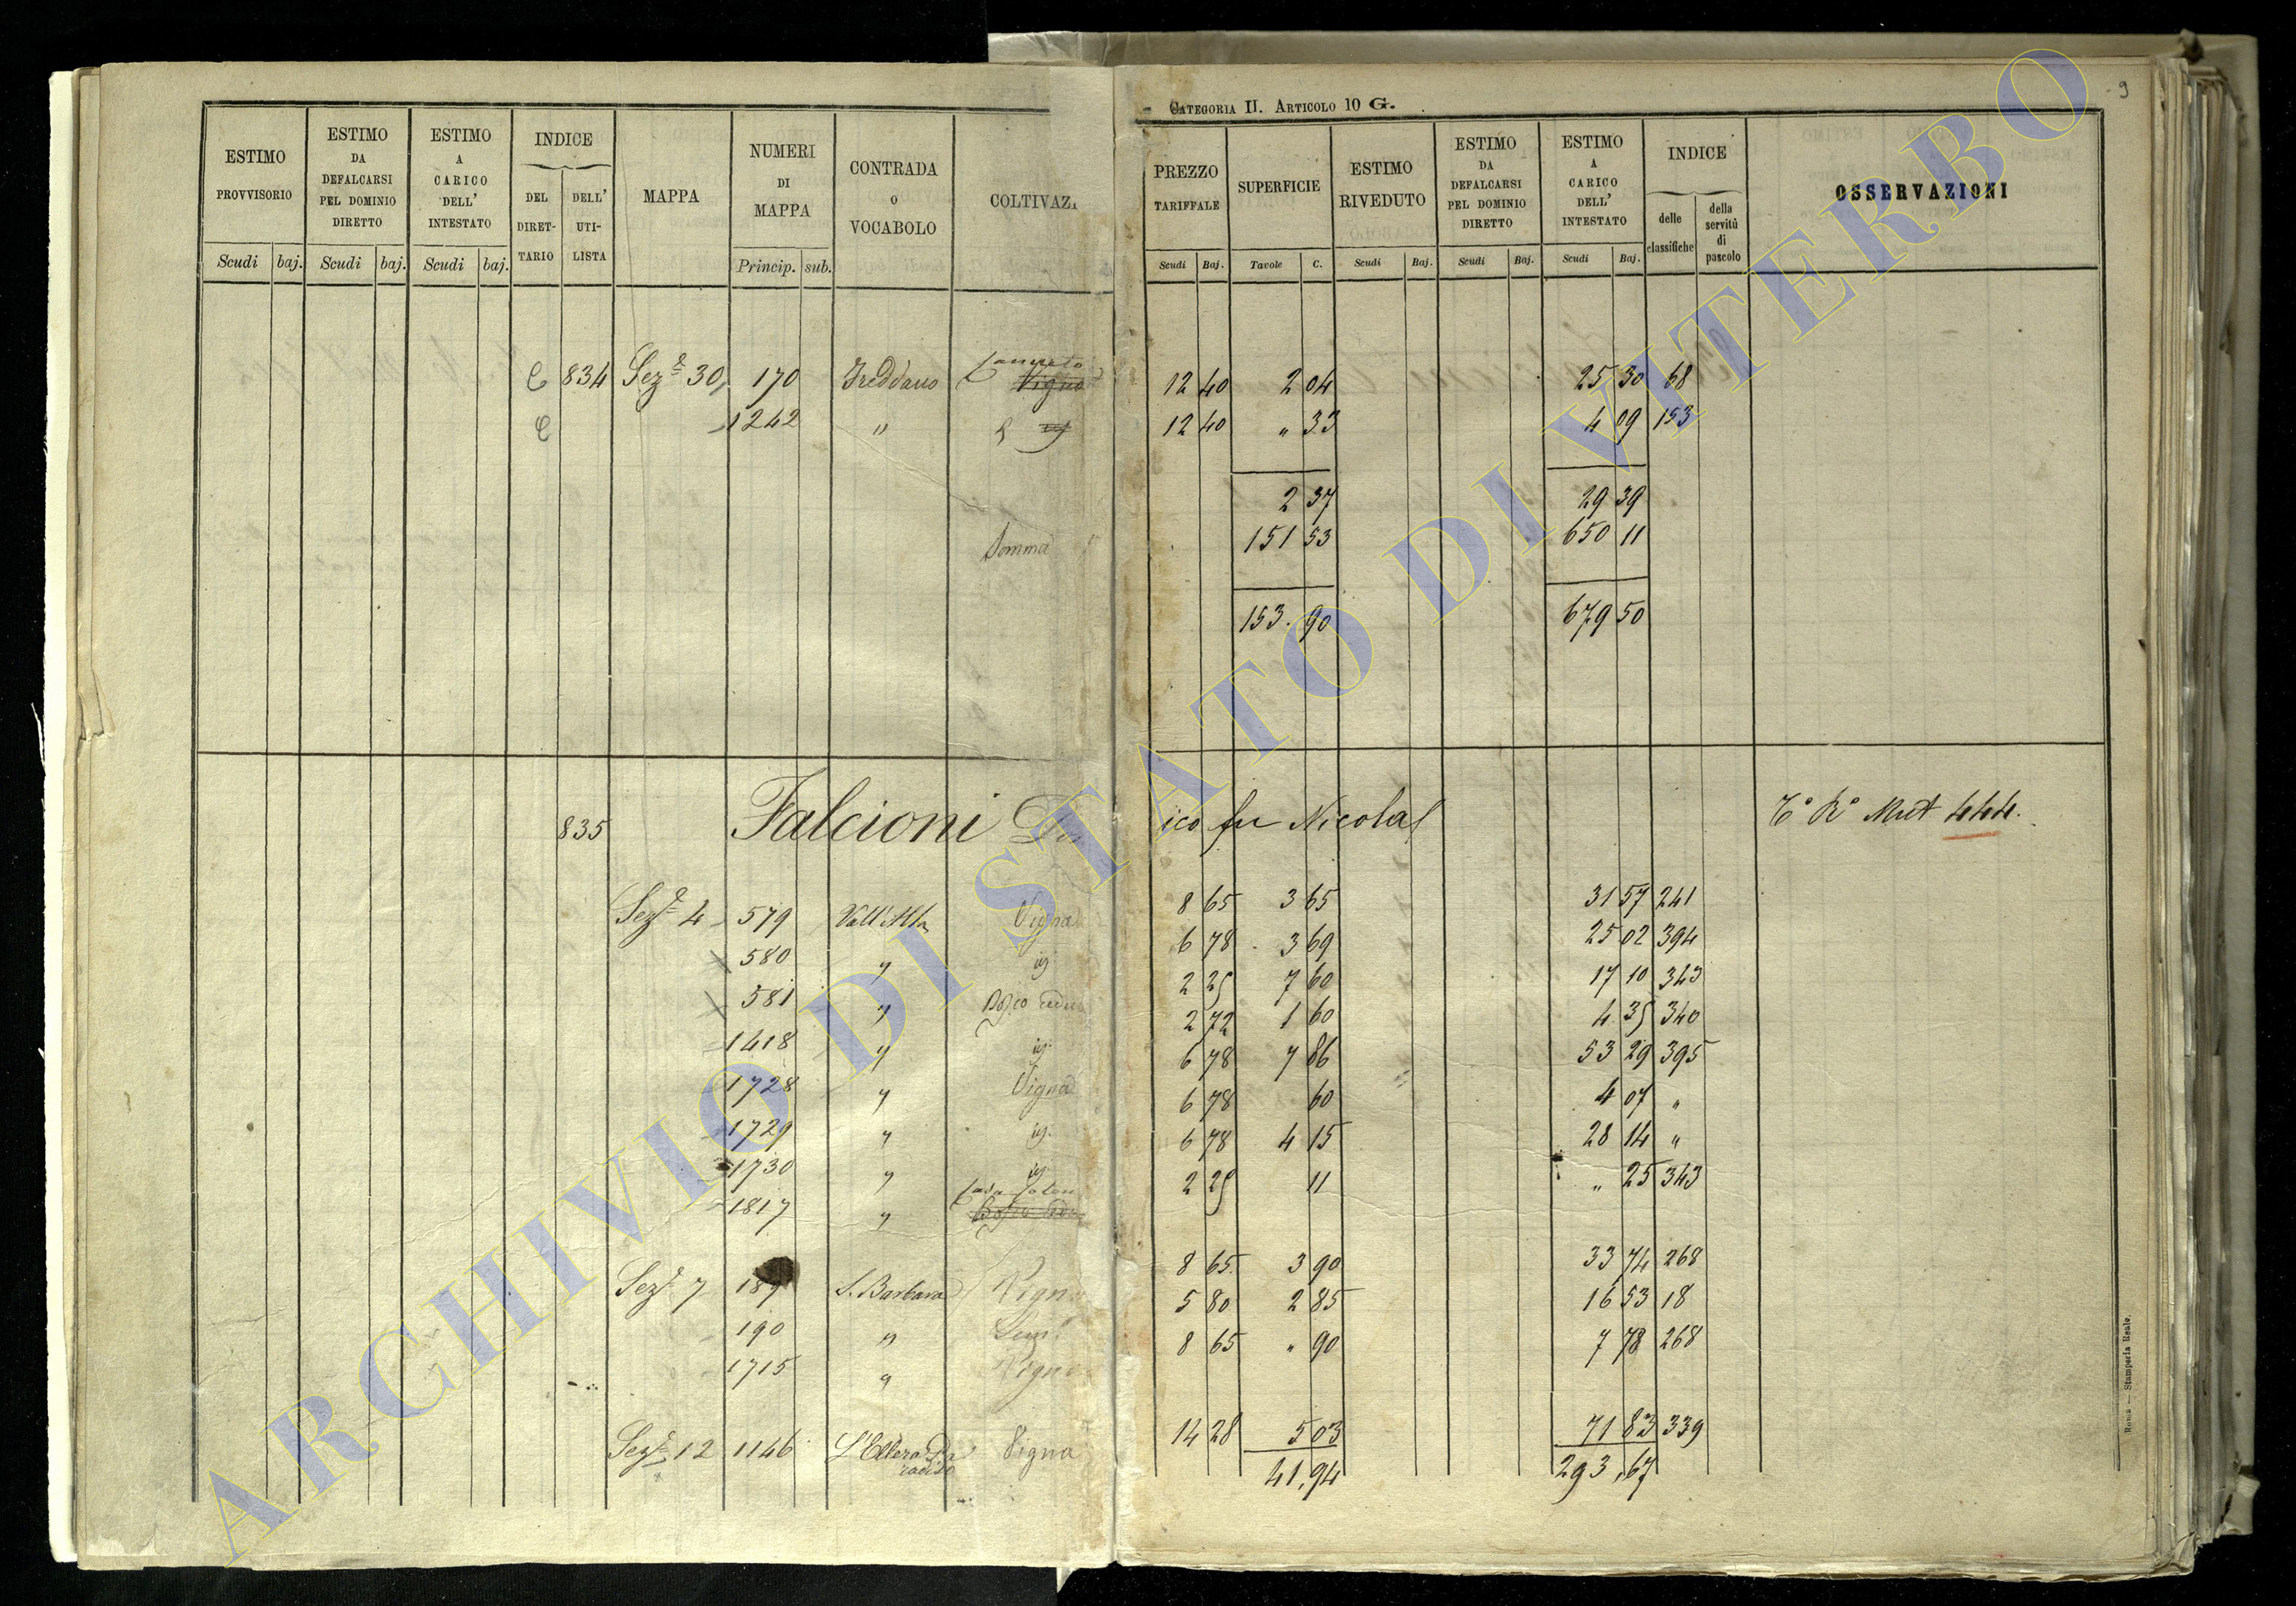 CATEGORIA II. ARTICOLO 10 G.
9
ESTIMO PROVVISORIO | ESTIMO DA DEFALCARSI PEL DOMINIO DIRETTO | ESTIMO A CARICO DELL' INTESTATO | INDICE | MAPPA | NUMERI DI MAPPA | CONTRADA O VOCABOLO | COLTIVAZ | PREZZO TARIFFALE | SUPERFICIE | ESTIMO RIVEDUTO | ESTIMO DA DEFALCARSI PEL DOMINIO DIRETTO | ESTIMO A CARICO DELL' INTESTATO | INDICE | OSSERVAZIONI
DEL DIRET-TARIO | DELL' UTI-LISTA | delle classifiche | della servitù di pascolo
Scudi | baj. | Scudi | baj. | Scudi | baj. | Princip. | sub. | Scudi | Baj. | Tavole | C. | Scudi | Baj. | Scudi | Baj. | Scudi | Baj.
834 Sez.e 30 170 Freddano Vigna 12 40 2 04 25 30 68
1242 " 12 40 " 33 4 09 153
2 37 29 39
Somma 151 53 650 11
153. 90 679 50
835 Falcioni ico fu Nicola
Sez.e 4 579 Vall'Alta Vigna 8 65 3 65 31 57 241
580 " ig. 6 78 3 69 25 02 394
581 " Bosco cedu 2 25 7 60 17 10 343
1418 " ig. 2 72 1 60 4 35 340
1728 " Vigna 6 78 7 86 53 29 395
1729 " ig. 6 78 60 4 07 "
1730 " ig. 6 78 4 15 28 14 "
1817 " 2 25 11 " 25 343
Sez.e 7 189 S. Barbara Vigna 8 65 3 90 33 74 268
190 " Sem.o 5 80 2 85 16 53 18
1715 " Vigna 8 65 " 90 7 78 268
Sez.e 12 1146 Vigna 14 28 5 03 71 83 339
41,94 293,67
Roma — Stamperia Reale.
ARCHIVIO DI STATO DI VITERBO